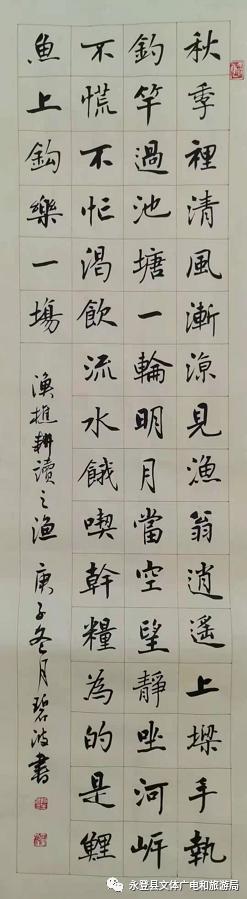 秋季裡清風漸涼見漁翁逍遙上墚手執
釣竿過池塘一輪明月當空望靜坐河岸
不慌不忙渴飲流水餓喫幹糧為的是鯉
魚上鈎樂一塲
漁樵耕讀之漁 庚子冬月碧波書
永登县文体广电和旅游局